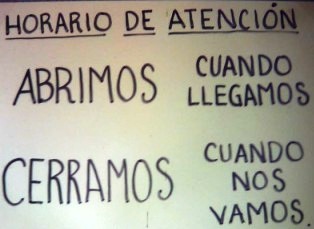 HORARIO DE ATENCIÓN
ABRIMOS CUANDO
LLEGAMOS
CERRAMOS CUANDO
NOS
VAMOS.